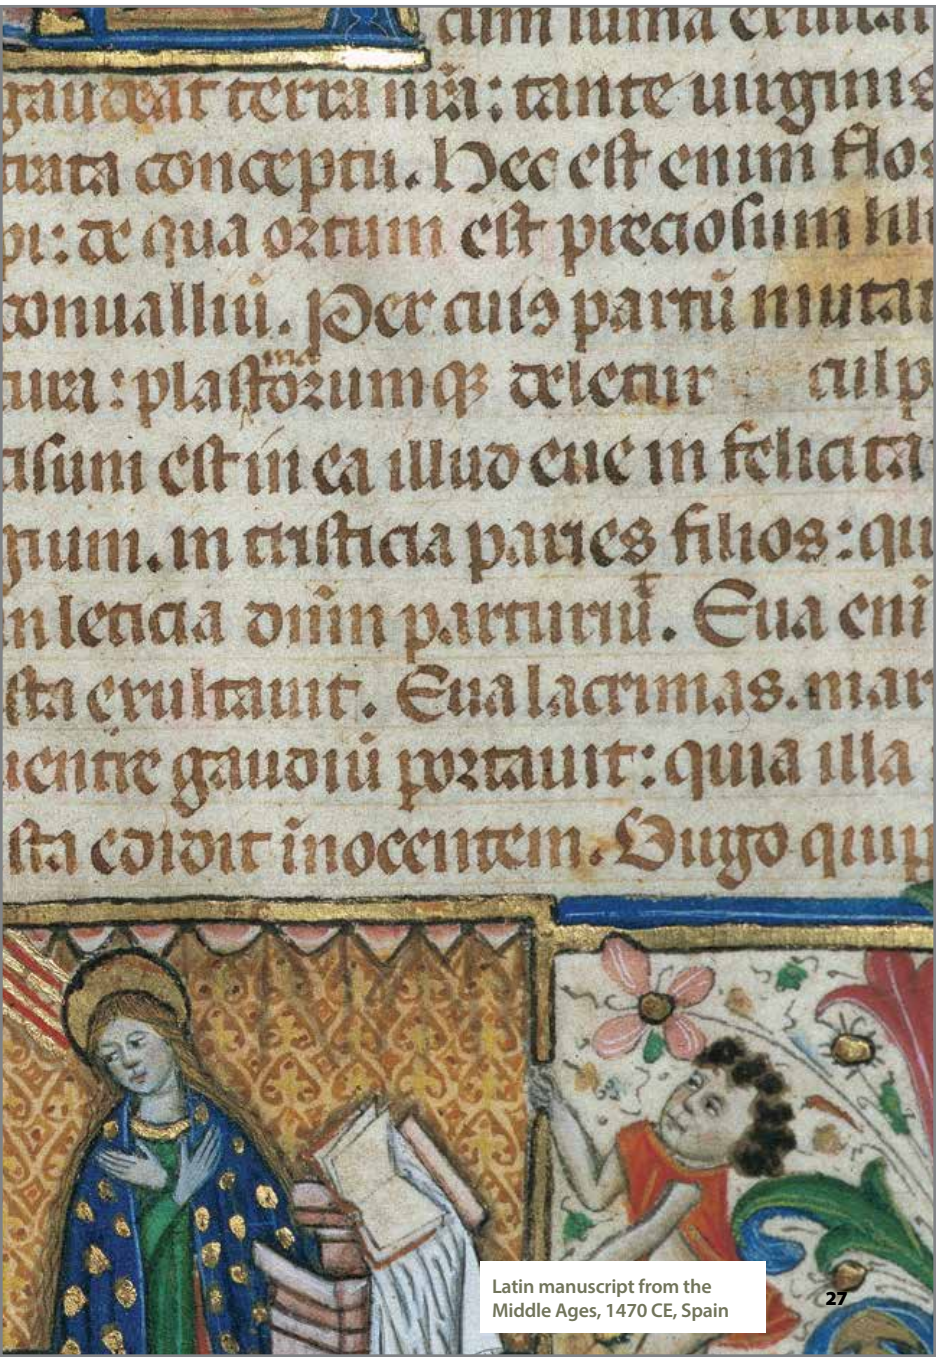 cum summa
gaudeat terra nr̄a: tante uirginis
trata conceptu. Hec est enim flos
pi: de qua ortum est preciosum lili
conualliū. Per cuiꝰ partū mutat
tura: plastorumqꝫ deletur culp
cisum est in ea illud eue in felicita
gium. in tristicia paries filios: qu
in leticia dn̄m parturiūt. Eua enī
sta exultauit. Eua lacrimas. mar
uentre gaudiū portauit: quia illa
sta edidit inocentem. Uirgo quip
Latin manuscript from the
Middle Ages, 1470 CE, Spain
27